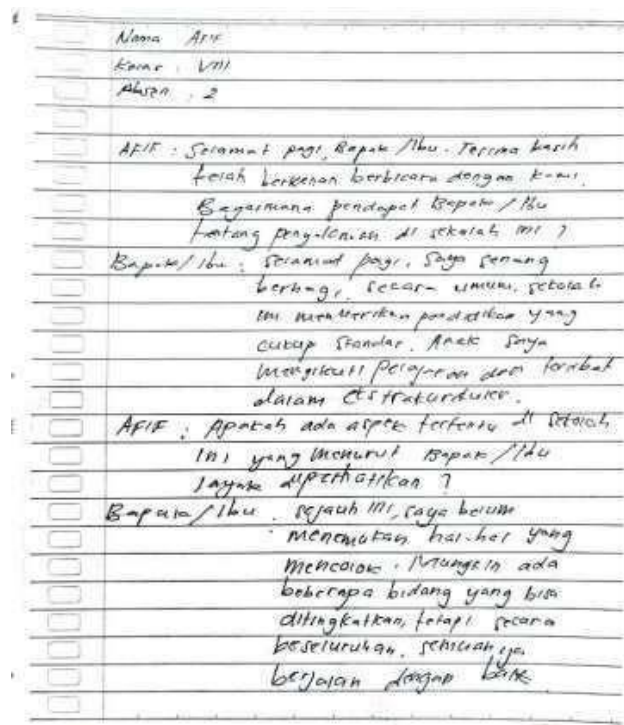 Nama Afif
Kelas : VIII
Absen : 2
AFIF : Selamat pagi, Bapak/Ibu. Terima kasih
telah berkenan berbicara dengan kami.
Bagaimana pendapat Bapak/Ibu
tentang pengalaman di sekolah ini ?
Bapak/Ibu : Selamat pagi, Saya senang
berbagi. secara umum, sekolah
ini memberikan pendidikan yang
cukup standar. Anak saya
mengikuti pelajaran dan terlibat
dalam ekstrakurikuler.
AFIF : Apakah ada aspek tertentu di sekolah
ini yang menurut Bapak/Ibu
layak diperhatikan ?
Bapak/Ibu : sejauh ini, saya belum
menemukan hal-hal yang
mencolok. Mungkin ada
beberapa bidang yang bisa
ditingkatkan, tetapi secara
keseluruhan, semuanya
berjalan dengan baik